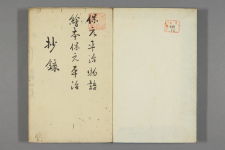 保元平治物語
繪本保元平治
抄錄